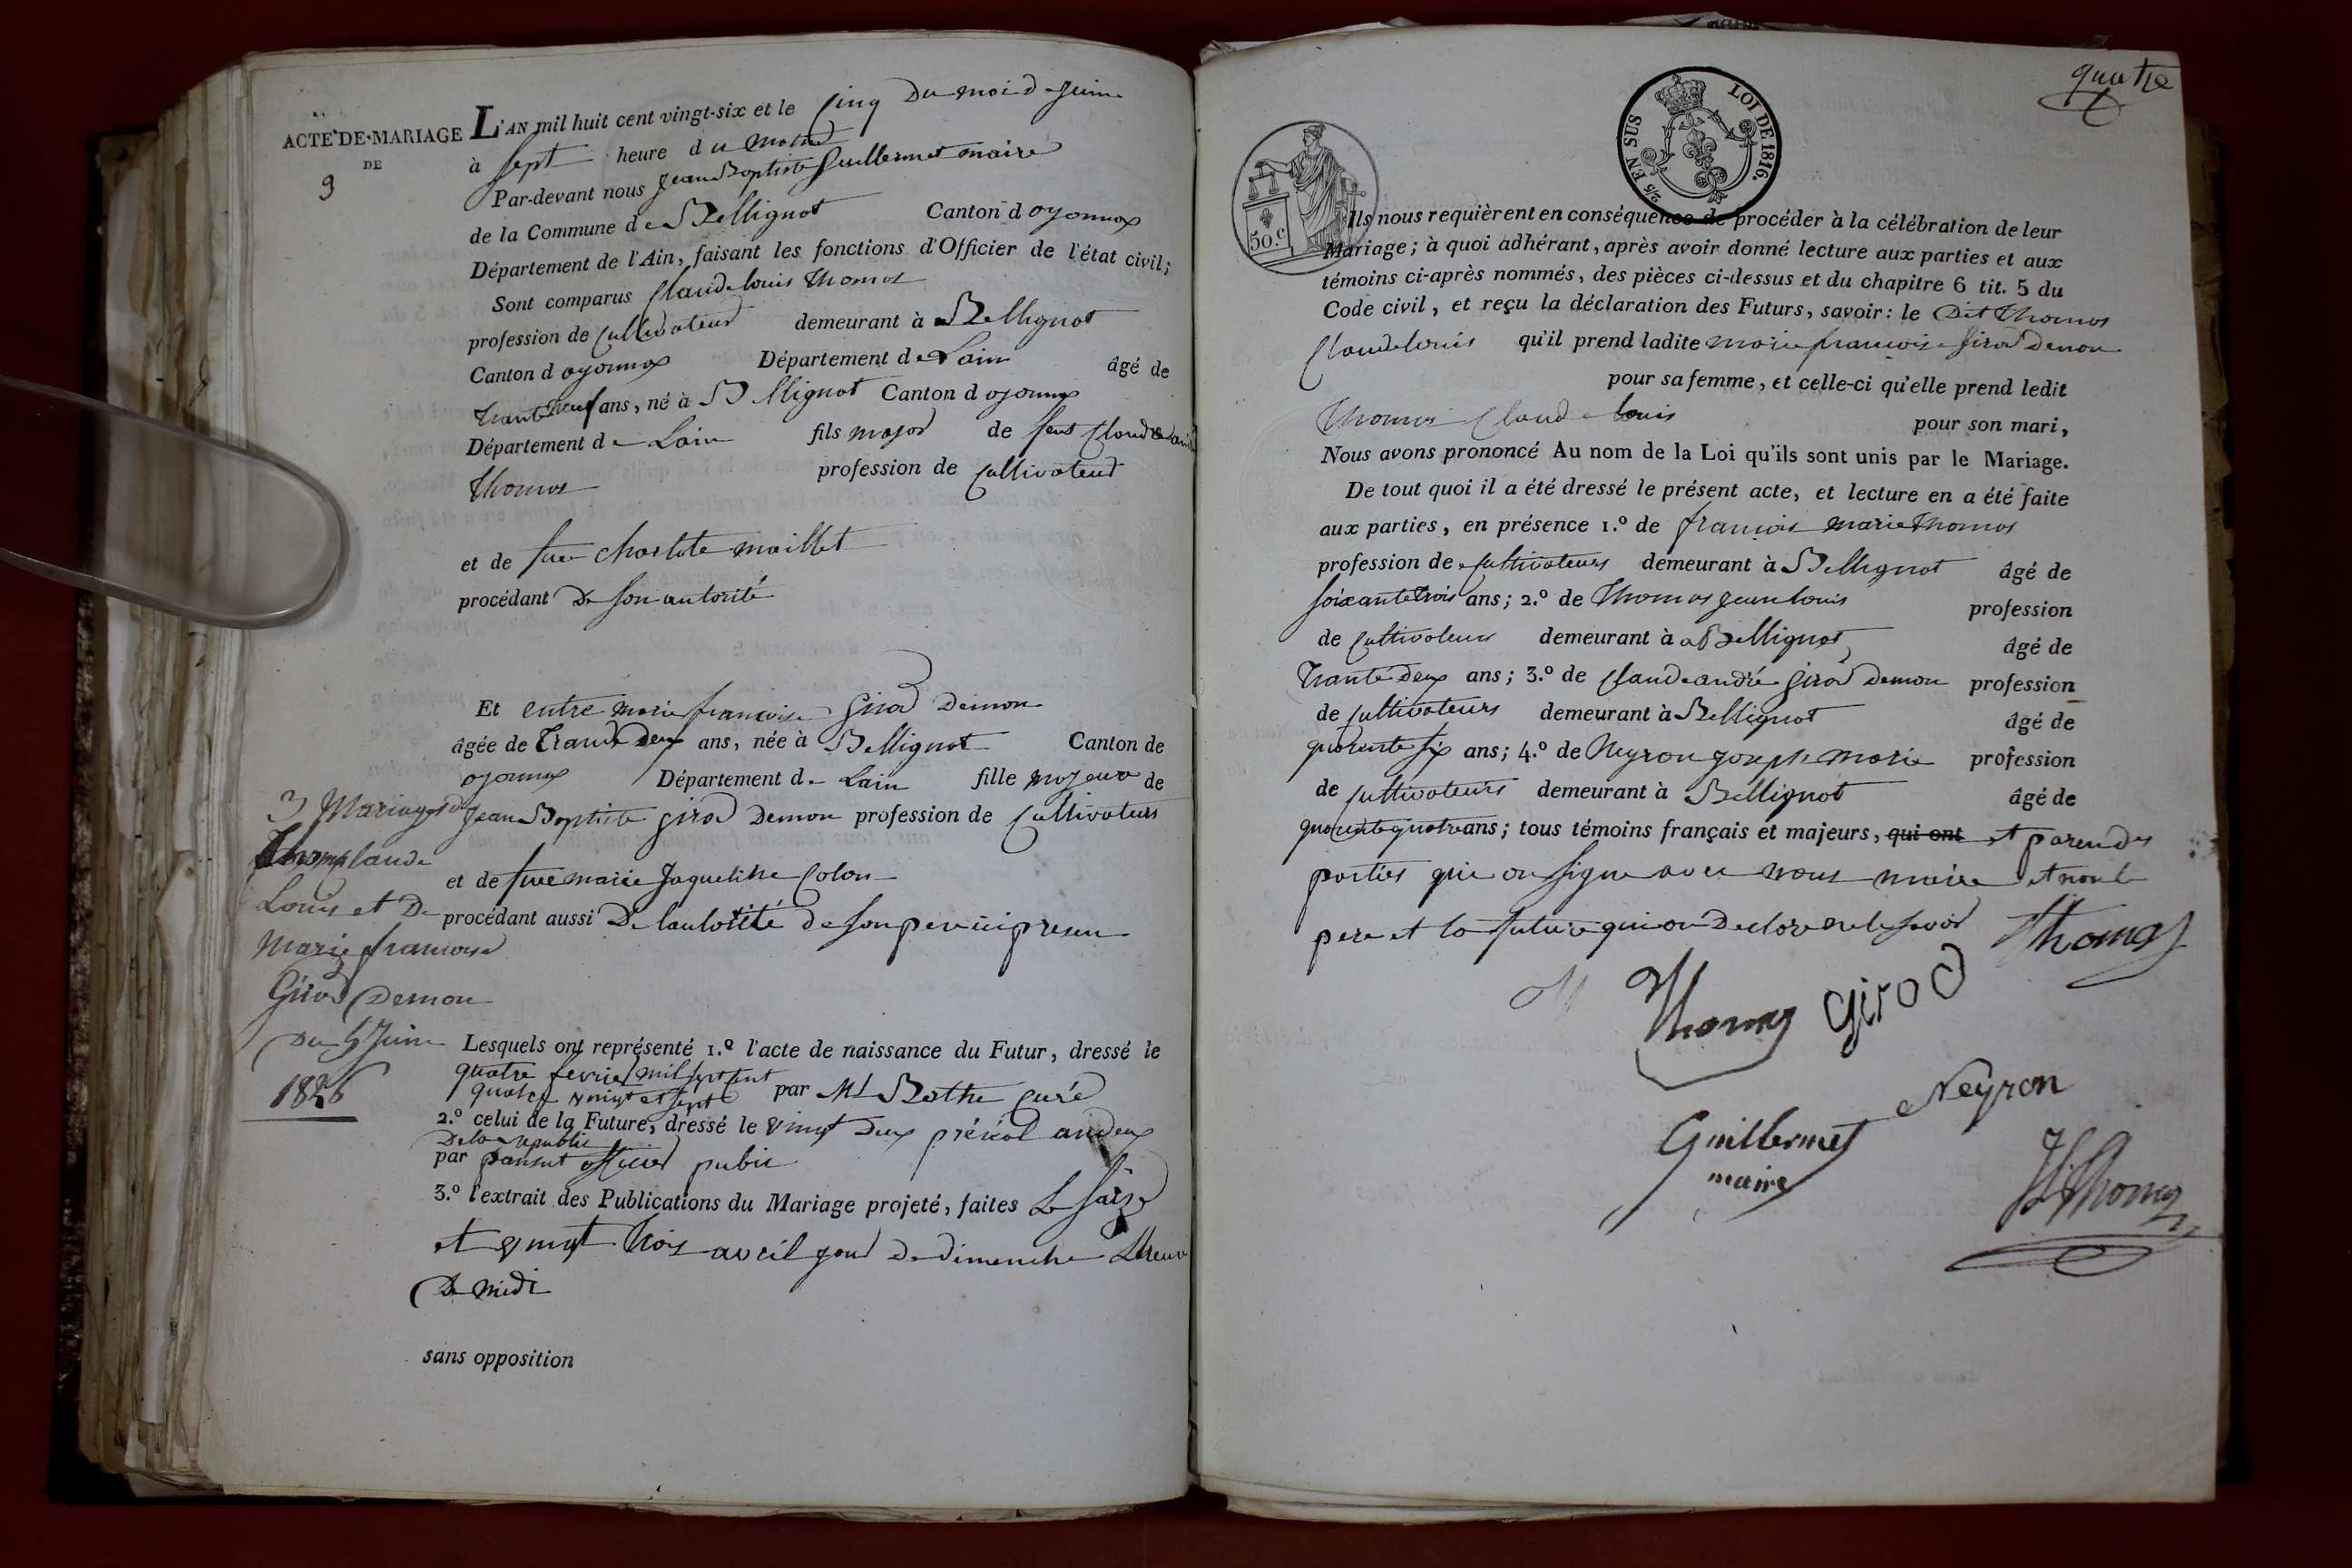 ACTE DE MARIAGE
DE
9
L'AN mil huit cent vingt-six et le cinq du moi de juin
à sept heure du matin
Par-devant nous jean Baptiste Guillermet maire
de la Commune de Bellignat Canton d oyonnax
Département de l'Ain, faisant les fonctions d'Officier de l'état civil;
Sont comparus Claude louis Thomas
profession de cultivateur demeurant à Bellignat
Canton d oyonnax Département de Lain âgé de
trante neuf ans, né à Bellignat Canton d oyonnax
Département de Lain fils major de feut Claude
Thomas profession de cultivateur
et de feue charlote maillet
procédant De son autorité
Et entre marie francoise Girod Demon
âgée de trante deux ans, née à Bellignat Canton de
oyonnax Département de Lain fille majeure de
jean Baptiste girod Demon profession de cultivateur
et de feue marie Jaqueline Colon
procédant aussi De lautorité de son pere ici presen
3 Mariage de
Thomas Claude
Louis et De
Marie francoise
Girod Demon
Du 5 Juin
1826
Lesquels ont représenté 1.º l'acte de naissance du Futur, dressé le
quatre fevrier mil sept cent
quatre vingt et sept par Mr Bothe curé
2.º celui de la Future, dressé le vingt deux préréal an deux
De la republic
par pansut officier public
3.º l'extrait des Publications du Mariage projeté, faites Le saize
et vingt trois avril jour de dimenche Lheure
De midi
sans opposition
quatre
2/5 EN SUS LOI DE 1816.
50.c
Ils nous requièrent en conséquence de procéder à la célébration de leur
Mariage; à quoi adhérant, après avoir donné lecture aux parties et aux
témoins ci-après nommés, des pièces ci-dessus et du chapitre 6 tit. 5 du
Code civil, et reçu la déclaration des Futurs, savoir: le Dit Thomas
Claude louis qu'il prend ladite marie francoise Girod Demon
pour sa femme, et celle-ci qu'elle prend ledit
Thomas Claude louis pour son mari,
Nous avons prononcé Au nom de la Loi qu'ils sont unis par le Mariage.
De tout quoi il a été dressé le présent acte, et lecture en a été faite
aux parties, en présence 1.º de francois marie Thomas
profession de cultivateurs demeurant à Bellignat âgé de
soixante trois ans; 2.º de Thomas jean louis profession
de cultivateurs demeurant à Bellignat âgé de
trante deux ans; 3.º de Claude andré Girod Demon profession
de cultivateurs demeurant à Bellignat âgé de
quarente six ans; 4.º de Neyron joseph marie profession
de cultivateurs demeurant à Bellignat âgé de
quarente quatre ans; tous témoins français et majeurs, qui ont et paren des
parties qui on signe avec nous maire et non le
pere et la future qui on Declare ne le savoir
Thomas
Thomas Girod
Neyron
Guillermet
maire
JL Thomas